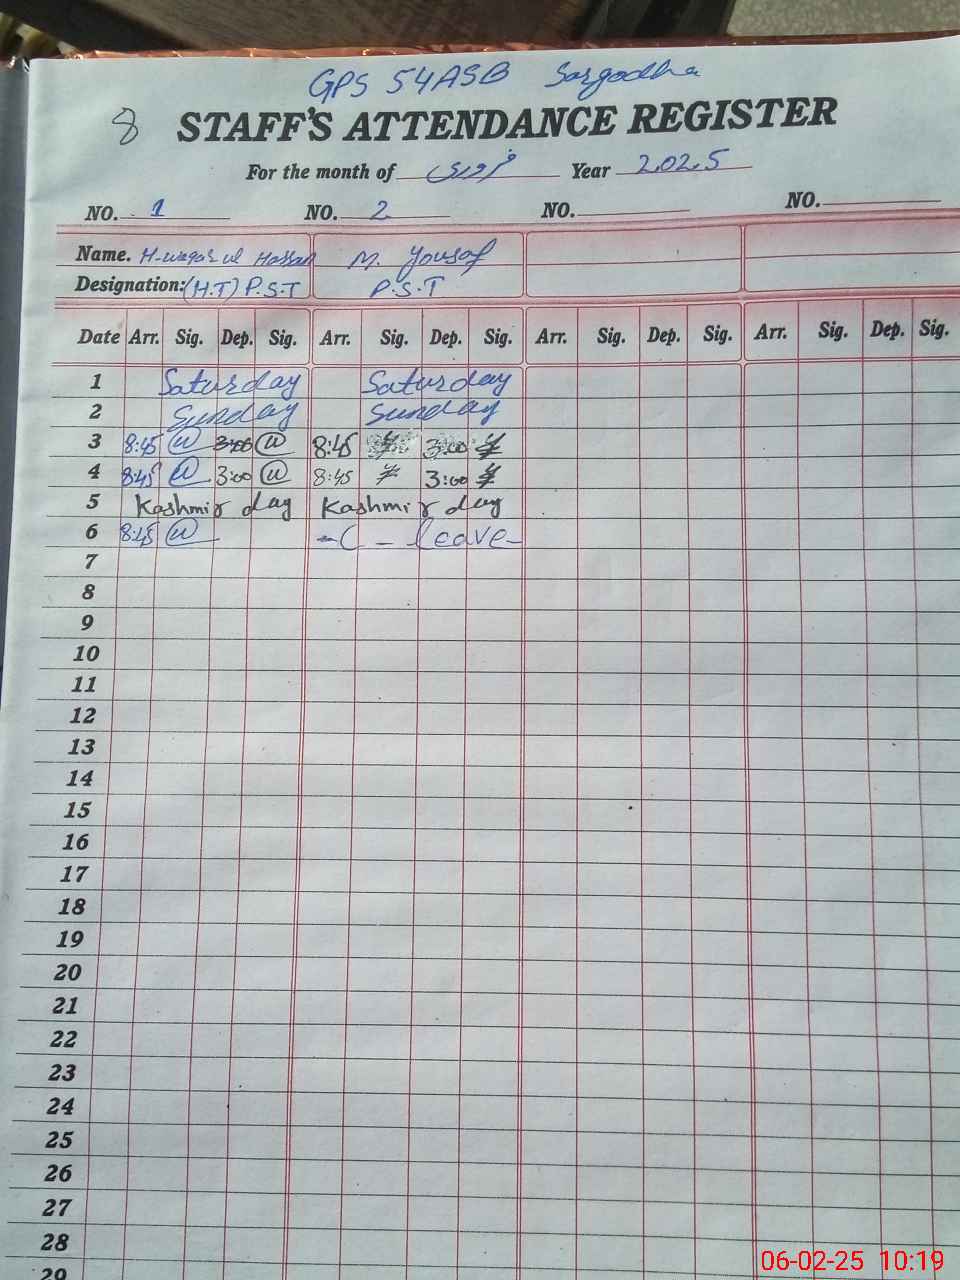 GPS 54ASB Sargodha
8 STAFF'S ATTENDANCE REGISTER
For the month of فروری Year 2025
NO. 1 NO. 2 NO. NO.
Name. H-waqar ul Hassan M. Yousaf
Designation: (H.T) P.S.T P.S.T
Date Arr. Sig. Dep. Sig. Arr. Sig. Dep. Sig. Arr. Sig. Dep. Sig. Arr. Sig. Dep. Sig.
1 Saturday Saturday
2 Sunday Sunday
3 8:45 3:00 8:45 3:00
4 8:45 3:00 8:45 3:00
5 Kashmir day Kashmir day
6 8:45 -C - leave-
7
8
9
10
11
12
13
14
15
16
17
18
19
20
21
22
23
24
25
26
27
28
29
06-02-25 10:19